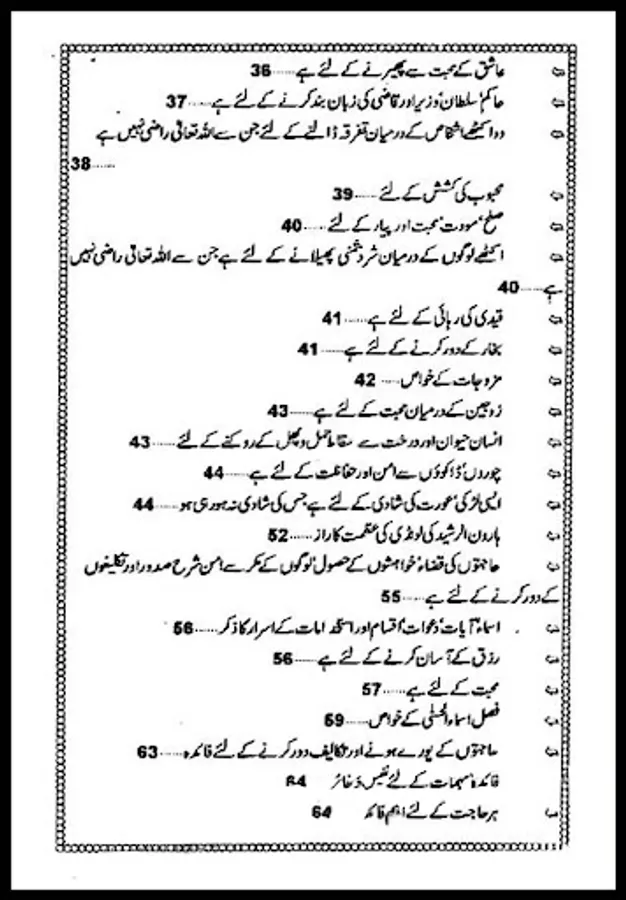 عاشق کے محبت سے پھیرنے کے لئے ہے......36
حاکم' سلطان' وزیر اور قاضی کی زبان بند کرنے کے لئے ہے......37
دو اکٹھے اشخاص کے درمیان تفرقہ ڈالنے کے لئے جن سے اللہ تعالیٰ راضی نہیں ہے
......38
محبوب کی کشش کے لئے......39
صلح' مودت' محبت اور پیار کے لئے......40
اکٹھے لوگوں کے درمیان شر و دشمنی پھیلانے کے لئے ہے جن سے اللہ تعالیٰ راضی نہیں
ہے......40
قیدی کی رہائی کے لئے ہے......41
بخار کے دور کرنے کے لئے ہے......41
مزوجات کے خواص......42
زوجین کے درمیان محبت کے لئے ہے......43
انسان حیوان اور درخت سے سقاط حمل و پھل کے روکنے کے لئے......43
چوروں' ڈاکوؤں سے امن اور حفاظت کے لئے ہے......44
ایسی لڑکی' عورت کی شادی کے لئے ہے جس کی شادی نہ ہو رہی ہو......44
ہارون الرشید کی لونڈی کی عظمت کا راز......52
حاجتوں کی قضاء' خواہشوں کے حصول' لوگوں کے مکر سے امن شرح صدور اور تکلیفوں
کے دور کرنے کے لئے ہے......55
اسماء' آیات' دعوات' اقسام اور استخدامات کے اسرار کا ذکر......56
رزق کے آسان کرنے کے لئے ہے......56
محبت کے لئے ہے......57
فصل اسماء الحسنٰی کے خواص......59
حاجتوں کے پورے ہونے اور تکالیف دور کرنے کے لئے فائدہ......63
فائدہ' مہمات کے لئے نفیس ذخائر 64
ہر حاجت کے لئے اہم فائدہ 64